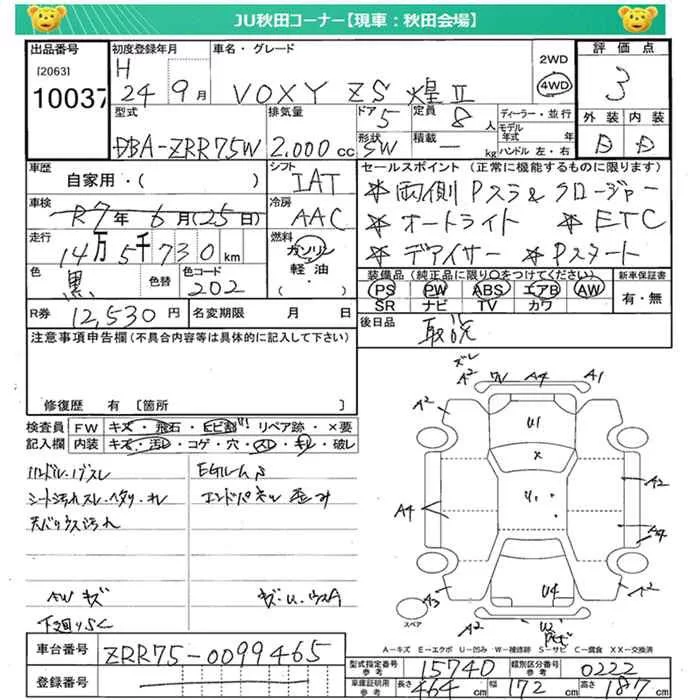 JU秋田コーナー【現車：秋田会場】
出品番号
[2063]
10037
初度登録年月
H
24 9月
車名・グレード
VOXY ZS 煌Ⅱ
2WD
4WD
評価点
3
型式
DBA-ZRR75W
排気量
2.000cc
ドア
5
形状
SW
定員
8人
積載
ー kg
ディーラー・並行
モデル年式 年
ハンドル 左・右
外装 内装
D D
車歴
自家用・( )
車検
R7年6月(25日)
走行
14万5千730km
色
黒
色替
色コード
202
シフト
IAT
冷房
AAC
燃料
ガソリン
軽油・
( )
セールスポイント (正常に機能するものに限ります)
＊両側Pスラ& クロージャー
＊オートライト ＊ETC
＊デアイサー ＊Pスタート
装備品(純正品に限り○をつけてください)
PS PW ABS エアB AW
SR ナビ TV カワ
新車保証書
有・無
R券 12,530円
名変期限 月 日
後日品
取説
注意事項申告欄(不具合内容等は具体的に記入して下さい)
修復歴 有 [箇所 ]
検査員
記入欄
FW キズ・飛石・ヒビ割・リペア跡・×要
内装 キズ・汚レ・コゲ・穴・スレ・キレ・破レ
シート汚れスレ・ヘタリ・
EGルーム
エンドパネル歪み
AWキズ
下廻りSC
キズ・U・ウスA
ズレ
A2
A4
A1
A2
A2
U1
×
U1
A4
A2
A4
A3
U4
A2
A2
スペア
A－キズ E－エクボ U－凹み W－補修跡 S－サビ C－腐食 XX－交換済
車台番号
ZRR75-0099465
登録番号
型式指定番号
参考
15740
類別区分番号
参考
0222
車庫証明用
参考
長さ
464cm
幅
172cm
高さ
187cm